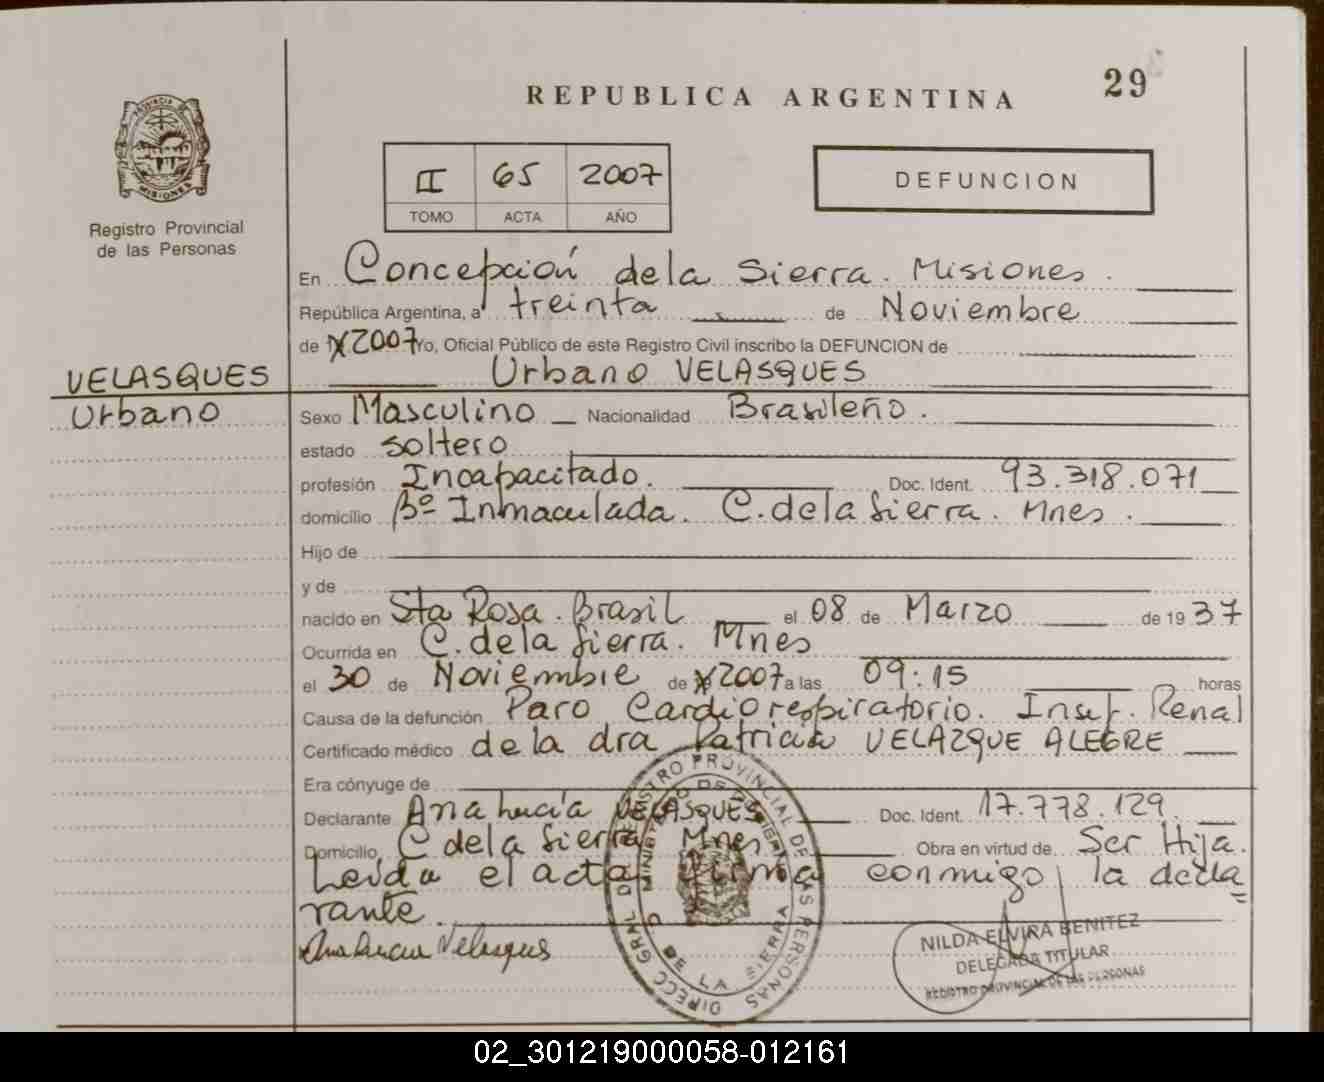 29
REPUBLICA ARGENTINA
PROVINCIA DE
MISIONES
Registro Provincial
de las Personas
II 65 2007
TOMO ACTA AÑO
DEFUNCION
En Concepción de la Sierra. Misiones.
República Argentina, a treinta de Noviembre
de 2007 Yo, Oficial Público de este Registro Civil inscribo la DEFUNCION de
Urbano VELASQUES
VELASQUES
Urbano
Sexo Masculino Nacionalidad Brasileño.
estado soltero
profesión Incapacitado. Doc. Ident. 93.318.071
domicilio Bº Inmaculada. C. de la Sierra. Mnes.
Hijo de
y de
nacido en Sta Rosa. Brasil el 08 de Marzo de 1937
Ocurrida en C. de la Sierra. Mnes
el 30 de Noviembre de 2007 a las 09:15 horas
Causa de la defunción Paro Cardiorespiratorio. Insuf. Renal
Certificado médico de la dra Patricia VELAZQUE ALEGRE
Era cónyuge de
Declarante Ana Lucía VELASQUES Doc. Ident. 17.778.129.
Domicilio C de la Sierra Mnes Obra en virtud de Ser Hija.
Leida el acta firma conmigo la decla
rante.
Ana Lucia Velasques
DIRECC GRAL DE REGISTRO PROVINCIAL DE LAS PERSONAS
MINISTERIO DE
DE LA SIERRA
NILDA ELVIRA BENITEZ
DELEGADA TITULAR
REGISTRO PROVINCIAL DE LAS PERSONAS
02_301219000058-012161